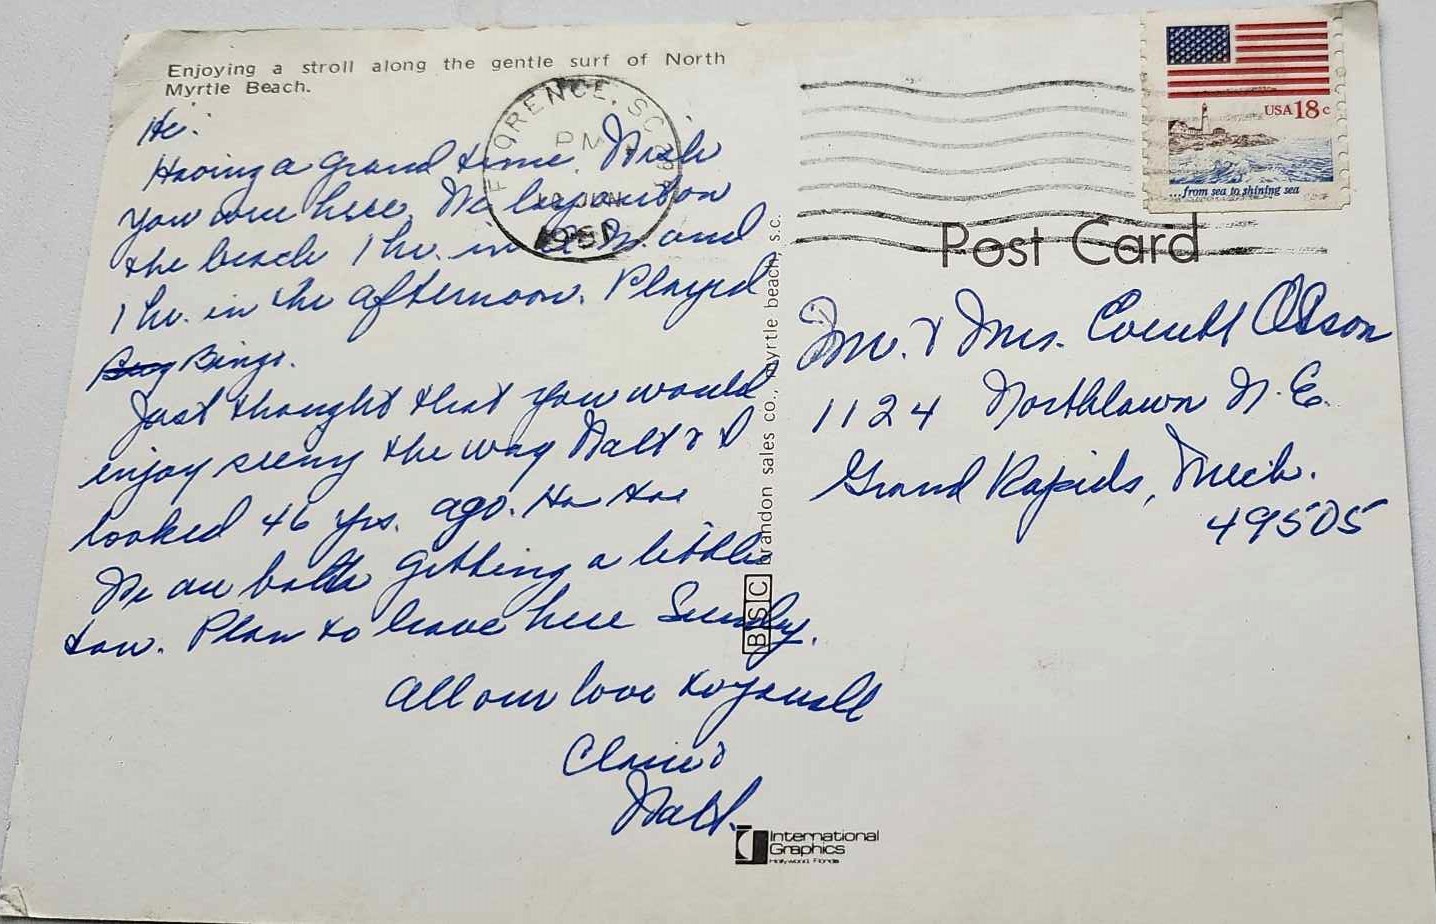 Enjoying a stroll along the gentle surf of North
Myrtle Beach.
Hi:
Having a grand time. Wish
you were here. We lay out on
the beach 1 hr. in A.M. and
1 hr. in the afternoon. Played
Bing Bingo.
Just thought that you would
enjoy seeing the way Walt & I
looked 46 yrs. ago. Ha Ha
We are both getting a little
tan. Plan to leave here Sunday.
All our love to you all
Walt.
FLORENCE, SC
PM
JUN
brandon sales co., myrtle beach, s.c.
BSC
International
Graphics
Hollywood Florida
USA 18c
...from sea to shining sea
Post Card
Mr. & Mrs. Everett Olson
1124 Northlawn N.E.
Grand Rapids, Mich.
49505